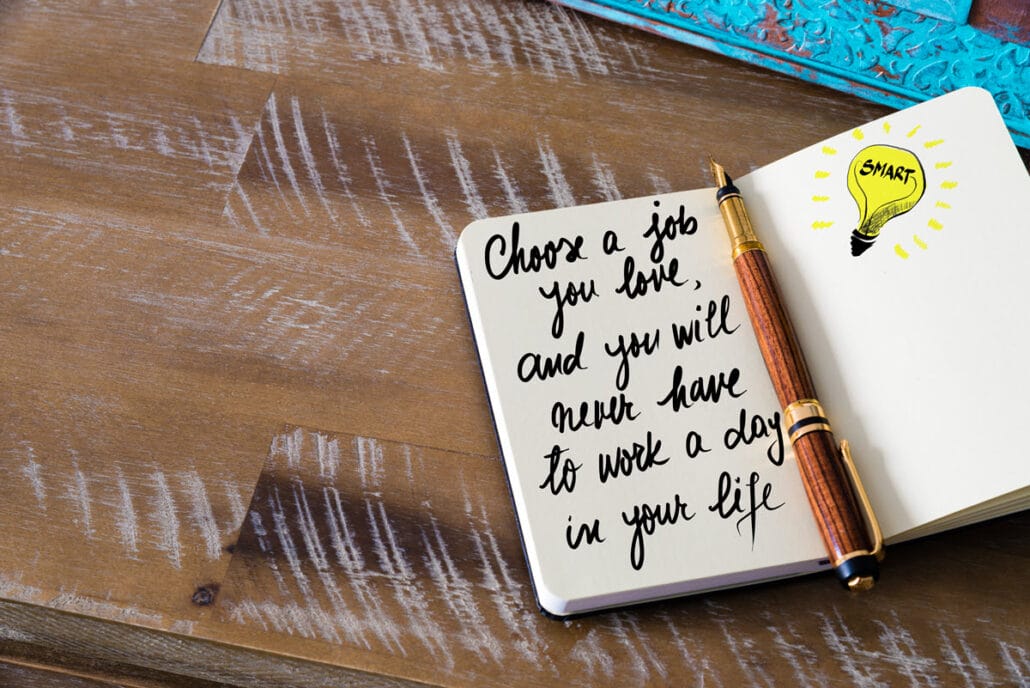 Choose a job
you love,
and you will
never have
to work a day
in your life
SMART